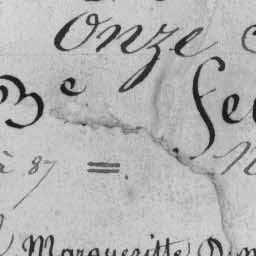 Onze
Be fe
à 87 =
Margueritte D